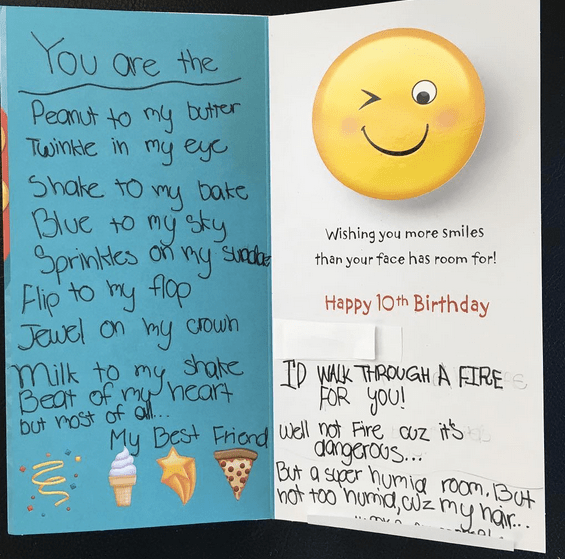 You are the
Peanut to my butter
Twinkle in my eye
Shake to my bake
Blue to my sky
Sprinkles on my sundae
Flip to my flop
Jewel on my crown
Milk to my shake
Beat of my heart
but most of all...
My Best Friend
Wishing you more smiles
than your face has room for!
Happy 10th Birthday
I'D WALK THROUGH A FIRE
FOR YOU!
Well not Fire cuz it's
dangerous...
But a super humid room. But
not too humid, cuz my hair...